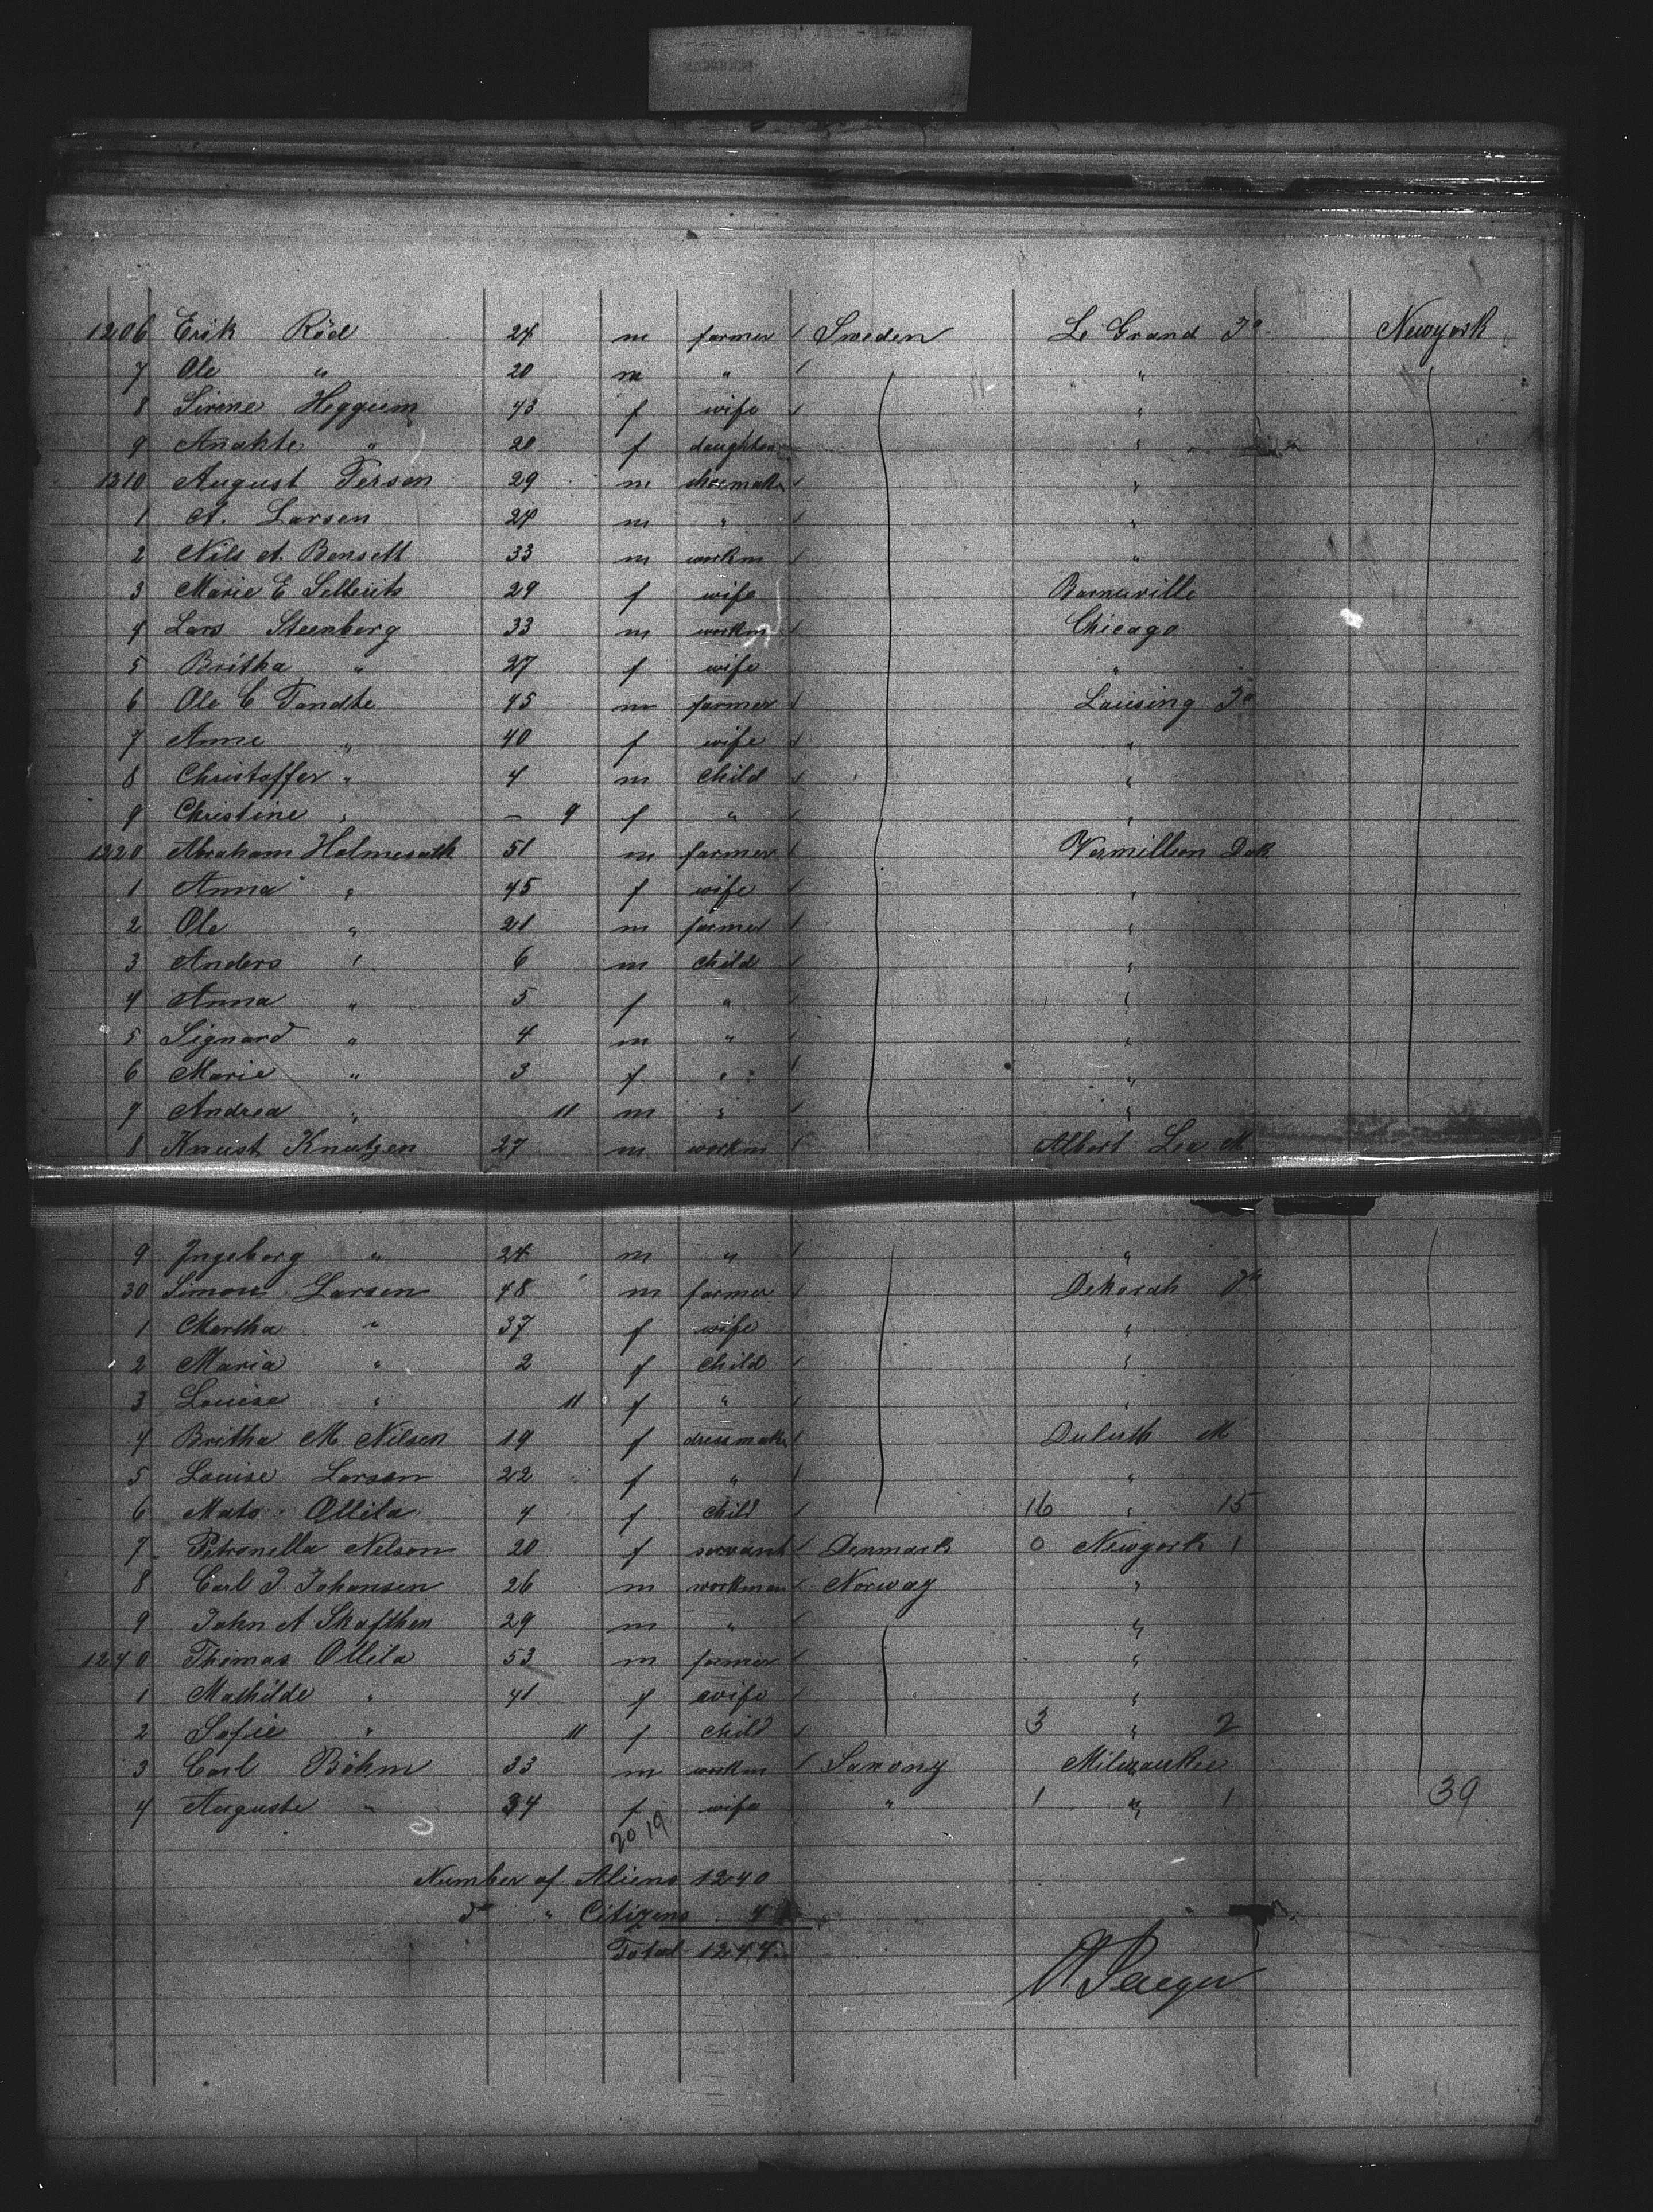 1206 Erik Röd 24 m farmer / Sweden Le Grand Ia Newyork
7 Ole " 20 m " / "
8 Sirene Heggum 43 f wife / "
9 Anahte " 20 f daughter "
1210 August Terson 29 m shoemak / "
1 A. Larsen 24 m " / "
2 Nils A. Bensett 33 m workm / "
3 Marie E 29 f wife Barnuville
4 Lars Steenberg 33 m workm / Chicago
5 Britha " 27 f wife / "
6 Ole C Tandte 45 m farmer / Lansing Ia
7 Anne " 40 f wife / "
8 Christoffer " 4 m child / "
9 Christine " – 9 f " / "
1220 Abraham Holmesath 51 m farmer / Vermillion Dak
1 Anna " 45 f wife / "
2 Ole " 21 m farmer / "
3 Anders " 6 m child / "
4 Anna " 5 f " / "
5 Signard " 4 m " / "
6 Marie " 3 f " / "
7 Andrea " 11 m " / "
8 Knust Knutzen 27 m workm / Albert Lea M
9 Ingeborg " 24 m " / "
30 Simon Larsen 48 m farmer / Dekorah Ia
1 Martha " 37 f wife / "
2 Maria " 2 f child / "
3 Louise " 11 f " / "
4 Britha M. Nilsen 19 f dressmak / Duluth M
5 Louise Larsen 22 f " / "
6 Mats Ollila 4 f child / 16 " 15
7 Petronella Nelson 20 f servant / Denmark 0 Newyork 1
8 Carl J. Johansen 26 m workman / Norway "
9 John A Skafthen 29 m " / "
1240 Thomas Ollila 53 m farmer / "
1 Mathilde " 41 f wife / "
2 Sofie " 11 f child / 3 " 2
3 Carl Böhm 33 m workm / Saxony Milwaukee
4 Auguste " 34 f wife " 1 " 1 39
20 19
Number of Aliens 1240
do " Citizens 4
Total 1244